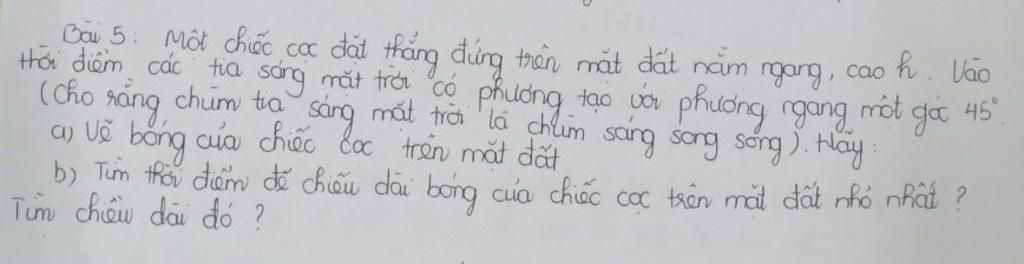 Bài 5: Một chiếc cọc đặt thẳng đứng trên mặt đất nằm ngang, cao h. Vào
thời điểm các tia sáng mặt trời có phương tạo với phương ngang một góc 45°.
(Cho rằng chùm tia sáng mặt trời là chùm sáng song song). Hãy:
a) Vẽ bóng của chiếc cọc trên mặt đất
b) Tìm thời điểm để chiều dài bóng của chiếc cọc trên mặt đất nhỏ nhất?
Tìm chiều dài đó?